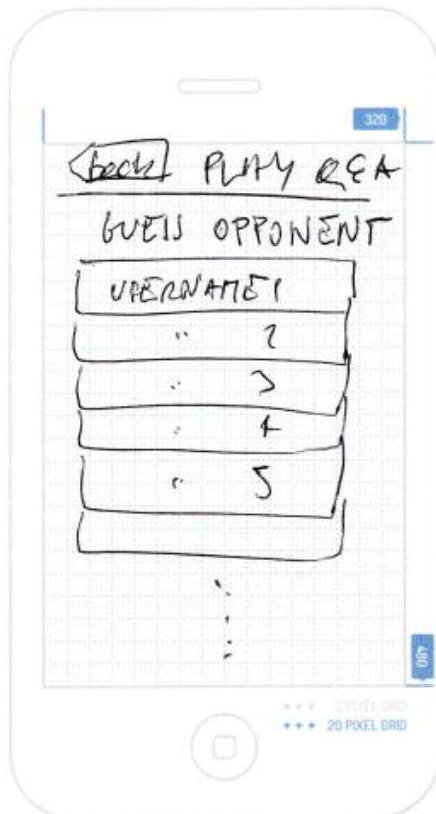 320
back PLAY Q&A
GUESS OPPONENT
USERNAME 1
" 2
" 3
" 4
" 5
480
20 PIXEL GRID